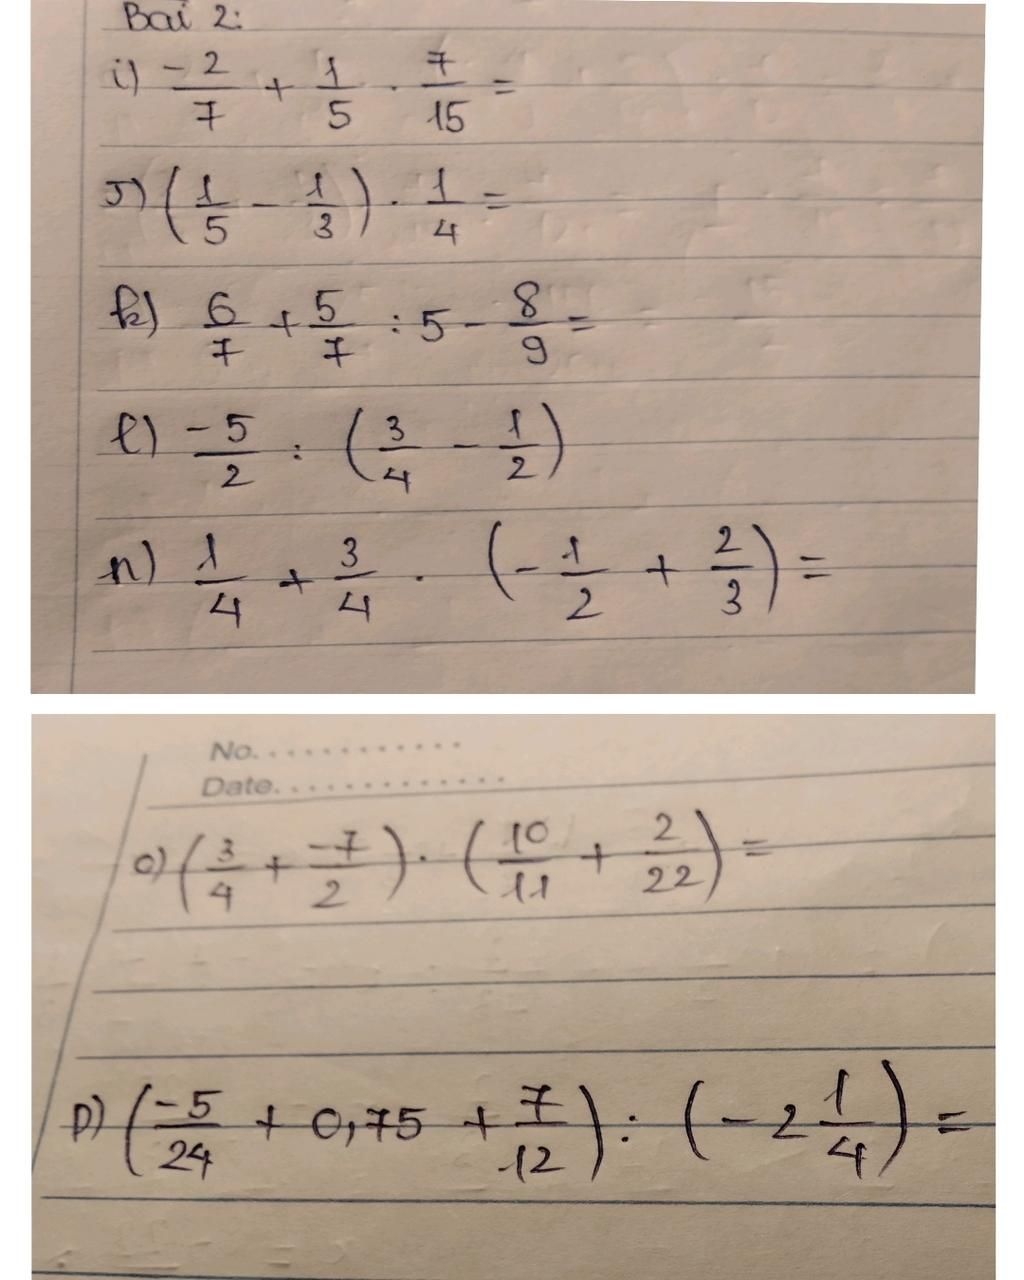 Bài 2:
i) -2/7 + 1/5 . 7/15 =
J) (1/5 - 1/3) . 1/4 =
k) 6/7 + 5/7 : 5 - 8/9 =
l) -5/2 : (3/4 - 1/2)
n) 1/4 + 3/4 . (-1/2 + 2/3) =
No. ............
Date. .............
o) (3/4 + -7/2) . (10/11 + 2/22) =
p) (-5/24 + 0,75 + 7/12) : (-2 1/4) =